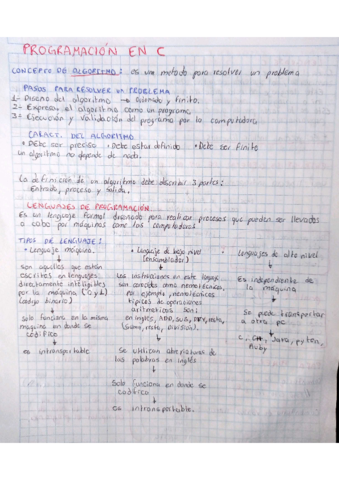 PROGRAMACIÓN EN C
CONCEPTO DE ALGORITMO: es un metodo para resolver un problema
PASOS PARA RESOLVER UN PROBLEMA
1- Diseño del algoritmo → Definido y finito.
2- Expresar el algoritmo como un programa.
3- Ejecución y validación del programa por la computadora
CARACT. DEL ALGORITMO
• DEbe ser preciso • Debe estar definido • Debe ser finito
un algoritmo no depende de nada.
La definición de un algoritmo debe describir 3 partes:
Entrada, proceso y salida.
LENGUAJES DE PROGRAMACIÓN
Es un lenguaje formal diseñado para realizar procesos que pueden ser llevados
a cabo por máquinas como las computadoras
TIPOS DE LENGUAJE:
• Lenguaje máquina.
son aquellos que están
escritos en lenguajes
directamente inteligibles
por la máquina (0 y 1)
(código binario)
solo funciona en la misma
maquina en donde se
codifico
es intransportable
• Lenguaje de bajo nivel
(ensamblador)
Las instrucciones en este lenguaje
son conocidas como nemotécnicos,
por ejemplo, nemotécnicos
típicos de operaciones
aritmeticas son:
en ingles, ADD, SUB, DIV, etc
(suma, resta, division).
Se utilizan abreviaturas de
las palabras en inglés
Solo funciona en donde se
codifico
es intransportable.
• Lenguajes de alto nivel
Es independiente de
la maquina
Se puede transportar
a otra pc
C, C++, Java, pyton,
Ruby